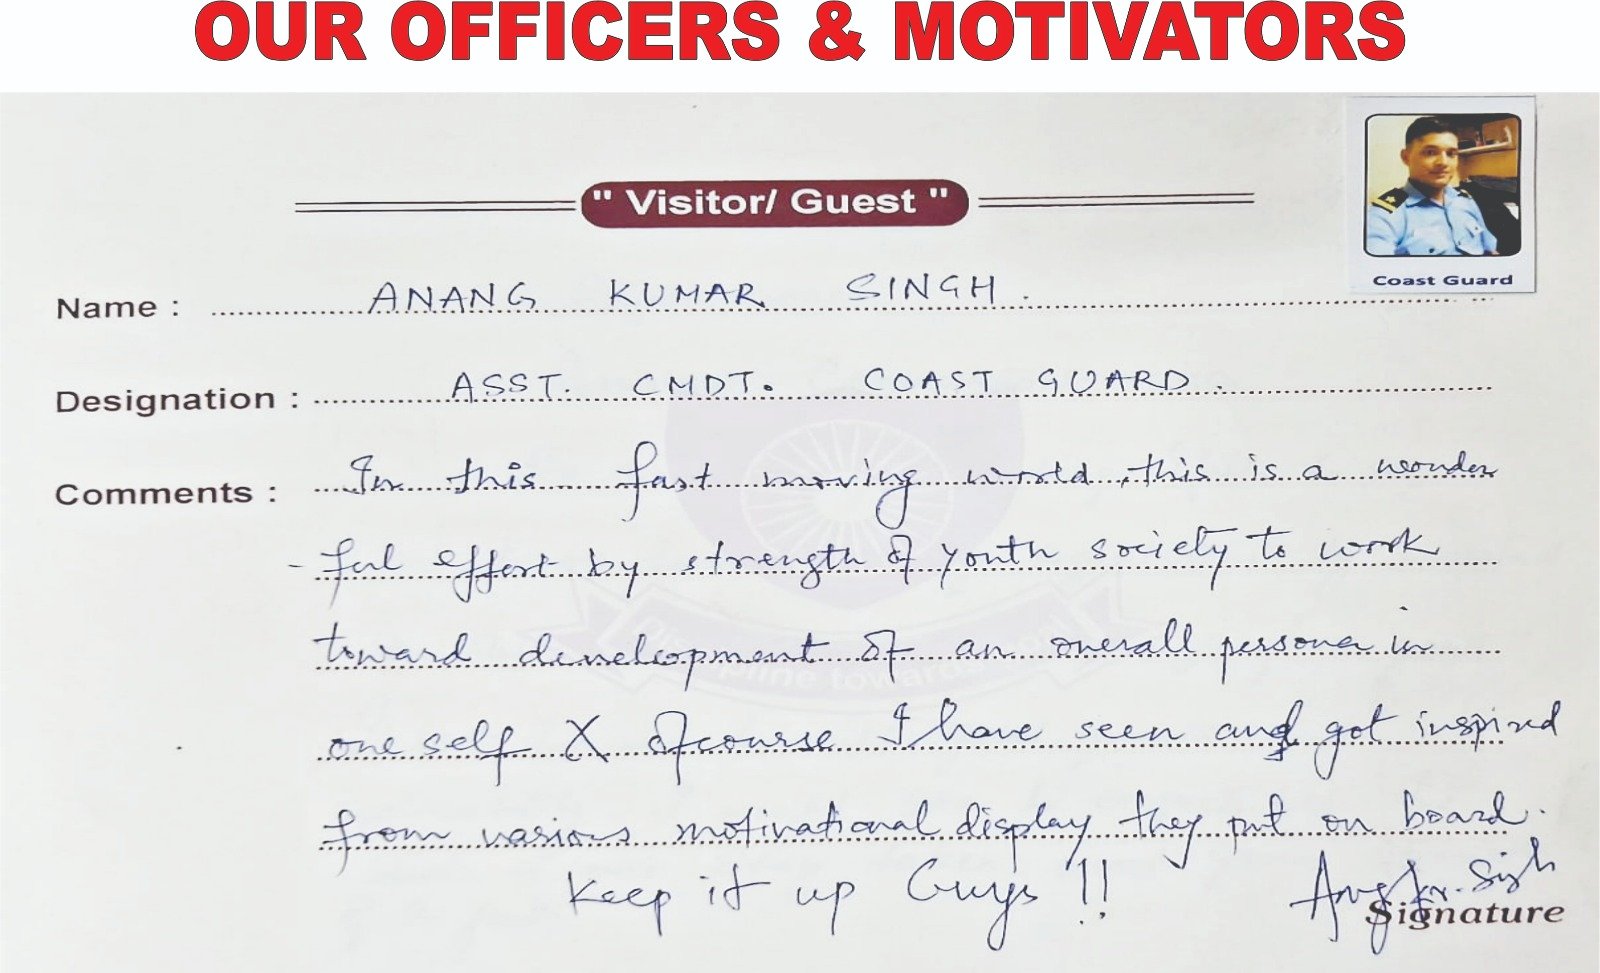 OUR OFFICERS & MOTIVATORS
" Visitor/ Guest "
Coast Guard
Name : ANANG KUMAR SINGH.
Designation : ASST. CMDT. COAST GUARD.
Comments : In this fast moving world, this is a wonder
- ful effort by strength of youth society to work
toward development of an overall persona in
one self X Ofcourse I have seen and got inspired
from various motivational display they put on board.
Keep it up Guys !!
Signature